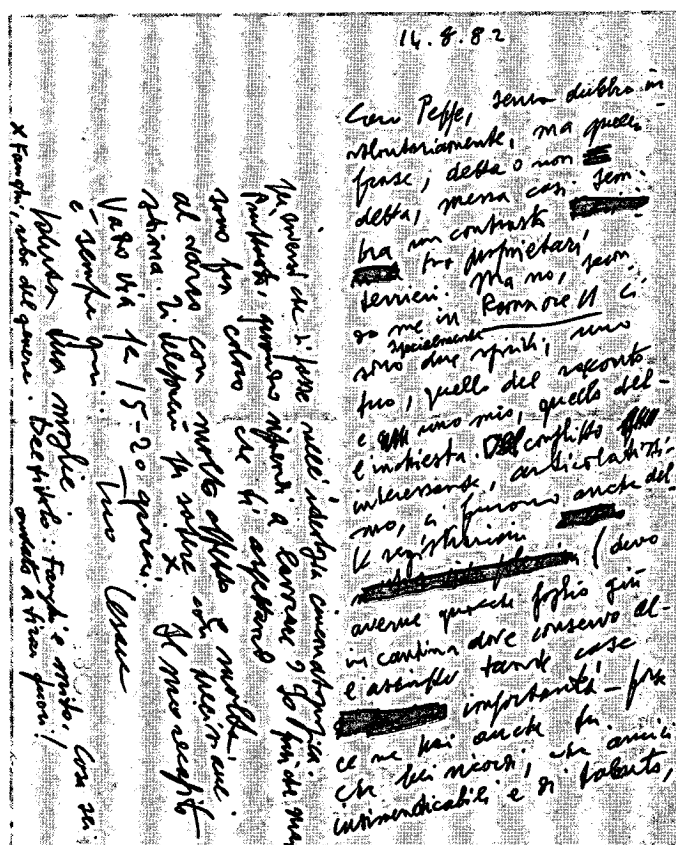 14.8.82
Caro Peppe, senza dubbio in
volontariamente, ma quella
frase, detta o non
detta, messa così sem-
bra un contrasto
tra proprietari
terrieri. Ma no, secon
do me in Roma ore 11 ci
specialmente
sono due spiriti, uno
tuo, quello del racconto
e uno mio, quello del-
l'inchiesta. Del conflitto
interessante, articolatissi-
mo, ci furono anche del
le registrazioni
(devo
averne qualche foglio giù
in cantina dove conservo al-
tante cose
importanti - forse
ce ne hai anche tu
che bei ricordi, che amici
indimenticabili e di talento,
che si fosse nell'ideologia cinematografica.
Piuttosto, quando riprendi a lavorare? Io più che mai
sono fra coloro che ti aspettano
al varco con molto affetto e molta
stima. Ti per sapere con precisione.
Vado via fra 15-20 giorni. X Il mio recapito
è sempre qui... Tuo Cesare
Saluta tua moglie.
X Fanghi, roba del genere. Del titolo: Fango e mito. Cosa sei
andato a tirar fuori!